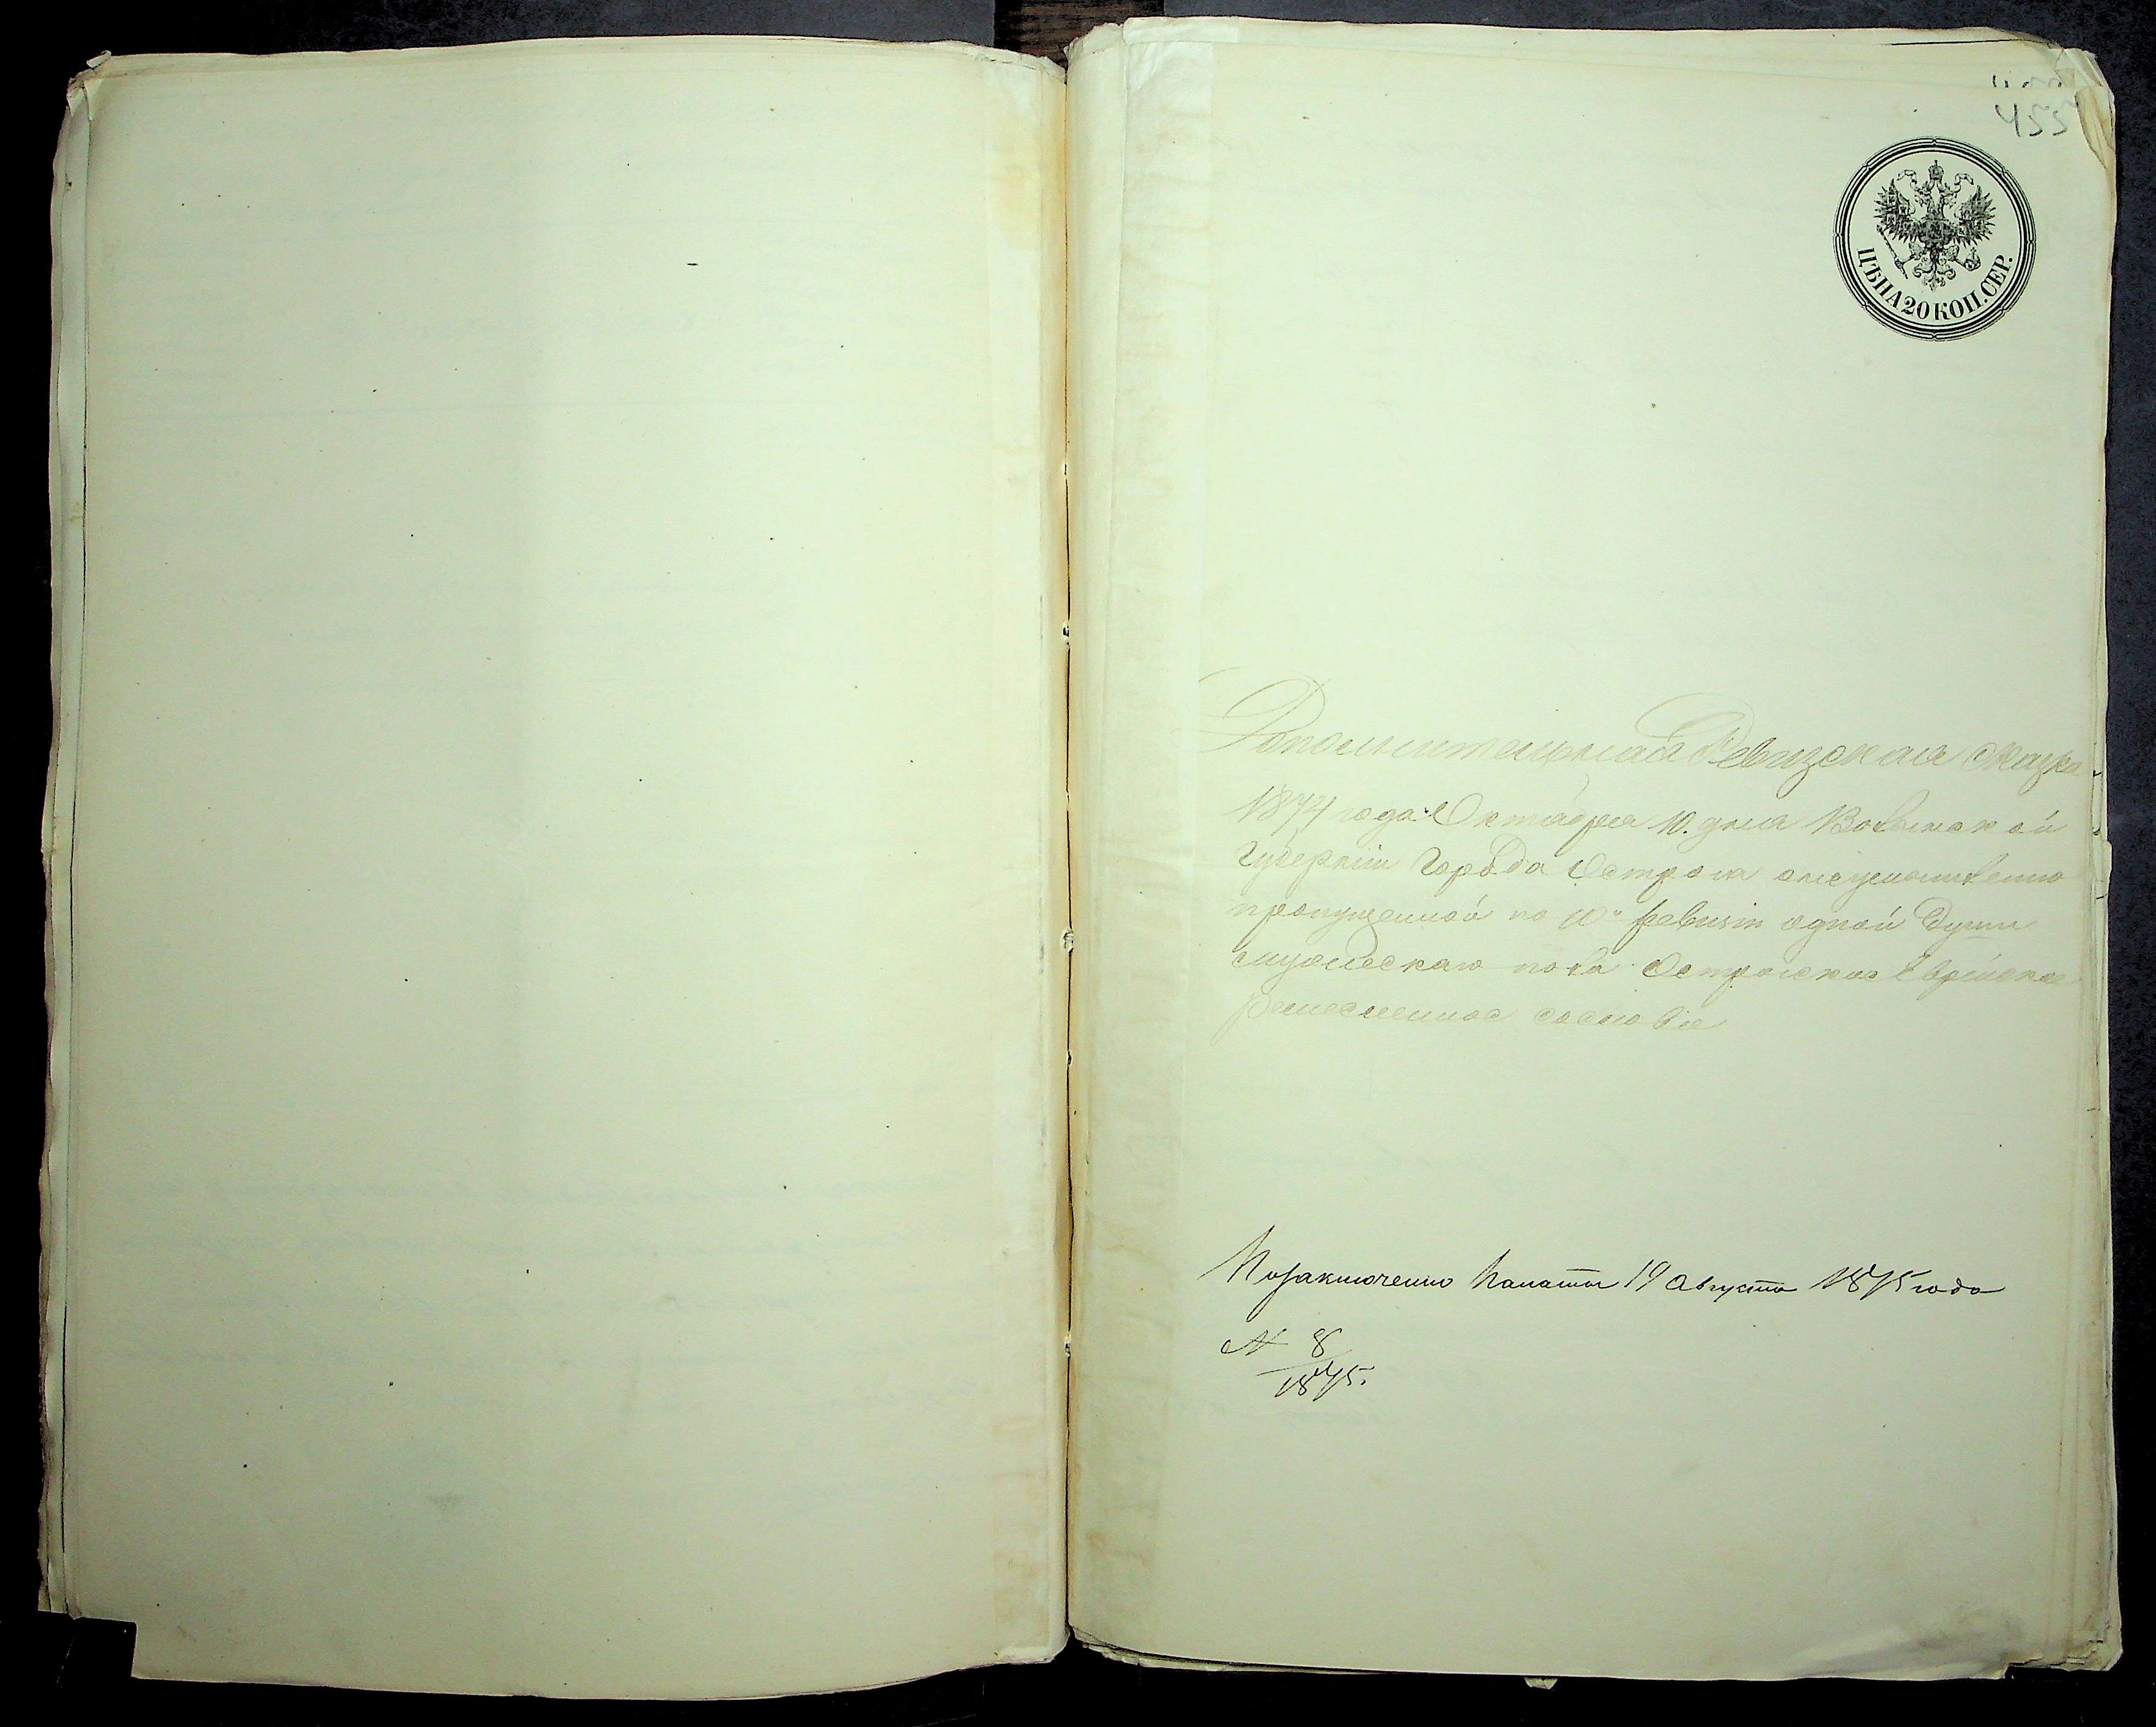 455
ЦѢНА 20 КОП. СЕР.
Дополнительная Ревизская сказка
1874 года Октября 10. дня Волынской
Губернiи Города Острога о неумышленно
пропущенной по 10й ревизiи одной души
мужескаго пола Острожское Еврейское
ремесленное сословiе
По заключенiю Палаты 19 Августа 1875 года
№ 8
1875.